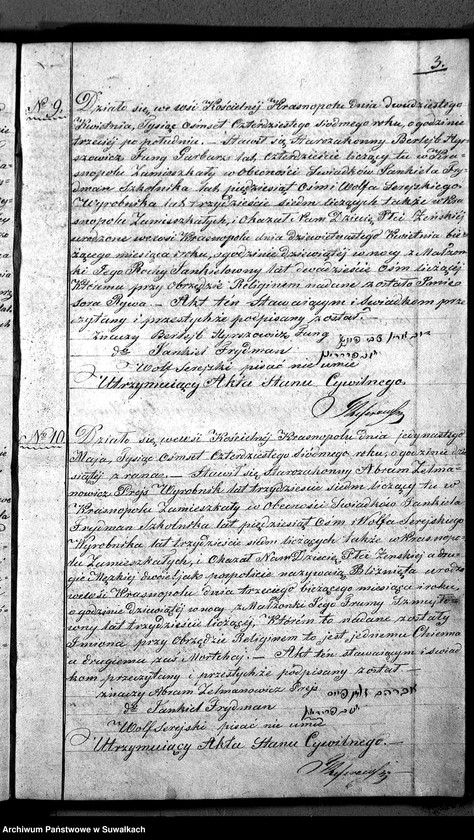 3.
No 9.
Działo się we wsi Kościelnej Krasnopolu dnia dwudziestego
Kwietnia, Tysiąc Ośmset Czterdziestego siódmego roku, o godzinie
trzeciej po południu. — Stawił się Starozakonny Berleyb
Jung Farbarz lat Czterdzieście liczący tu w Kras-
nopolu Zamieszkały w Obecności Świadków Jankiela Fry-
dman Szkolnika lat pięćdziesiąt Ośm i Wolfa Serejskiego
Wyrobnika lat trzydzieście siedm liczących także w Kra-
snopolu Zamieszkałych, i Okazał Nam Dziecię Płci Żeńskiej
urodzone we wsi Krasnopolu dnia dziewiętnastego Kwietnia bie-
żącego miesiąca i roku, o godzinie dziewiątej w nocy z Małżon-
ki Jego Rochy Jankielowny lat dwadzieście Ośm liczącej.
Któremu przy Obrzędzie Religinem nadane zostało Imie
Sora Rywa. — Akt ten Stawającym i Świadkom prze-
czytany i przez tychże podpisany został.
znaczy Berleyb Jung
do Jankiel Frydman
Wolf Serejski pisać nie umie
Utrzymujący Akta Stanu Cywilnego.
No 10.
Działo się we wsi Kościelnej Krasnopolu dnia jedynastego
Maja, Tysiąc Ośmset Czterdziestego Siódmego, roku, o godzinie dzie-
siątej z rana. — Stawił się Starozakonny Abram Zelma-
nowicz Prejs Wyrobnik lat trzydzieście siedm liczący tu w
Krasnopolu Zamieszkały w Obecności Świadków Jankiela
Frydman Szkolnika lat pięćdziesiąt Ośm i Wolfa Serejskiego
Wyrobnika lat trzydzieście siedm liczących także w Krasnopo-
lu Zamieszkałych, i Okazał Nam Dziecię Płci Żeńskiej a dru-
gie Męzkiej dwoje jako pospolicie nazywają Bliźnięta urodzo-
ne we wsi Krasnopolu dnia trzeciego bieżącego miesiąca i roku,
o godzinie dziewiątej w nocy, z Małżonki Jego Frumy
wny lat trzydzieście liczącej, Którem to nadane zostały
Imiona przy Obrzędzie Religinem to jest jednemu
a drugiemu zaś Mortchej. — Akt ten stawającym i świad-
kom przeczytany i przez tychże podpisany został —
znaczy Abram Zelmanowicz Prejs
do Jankiel Frydman
Wolf Serejski pisać nie umie
Utrzymujący Akta Stanu Cywilnego. —
Archiwum Państwowe w Suwałkach